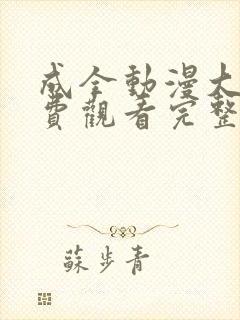 成全動漫大
費觀看完整
蘇步青